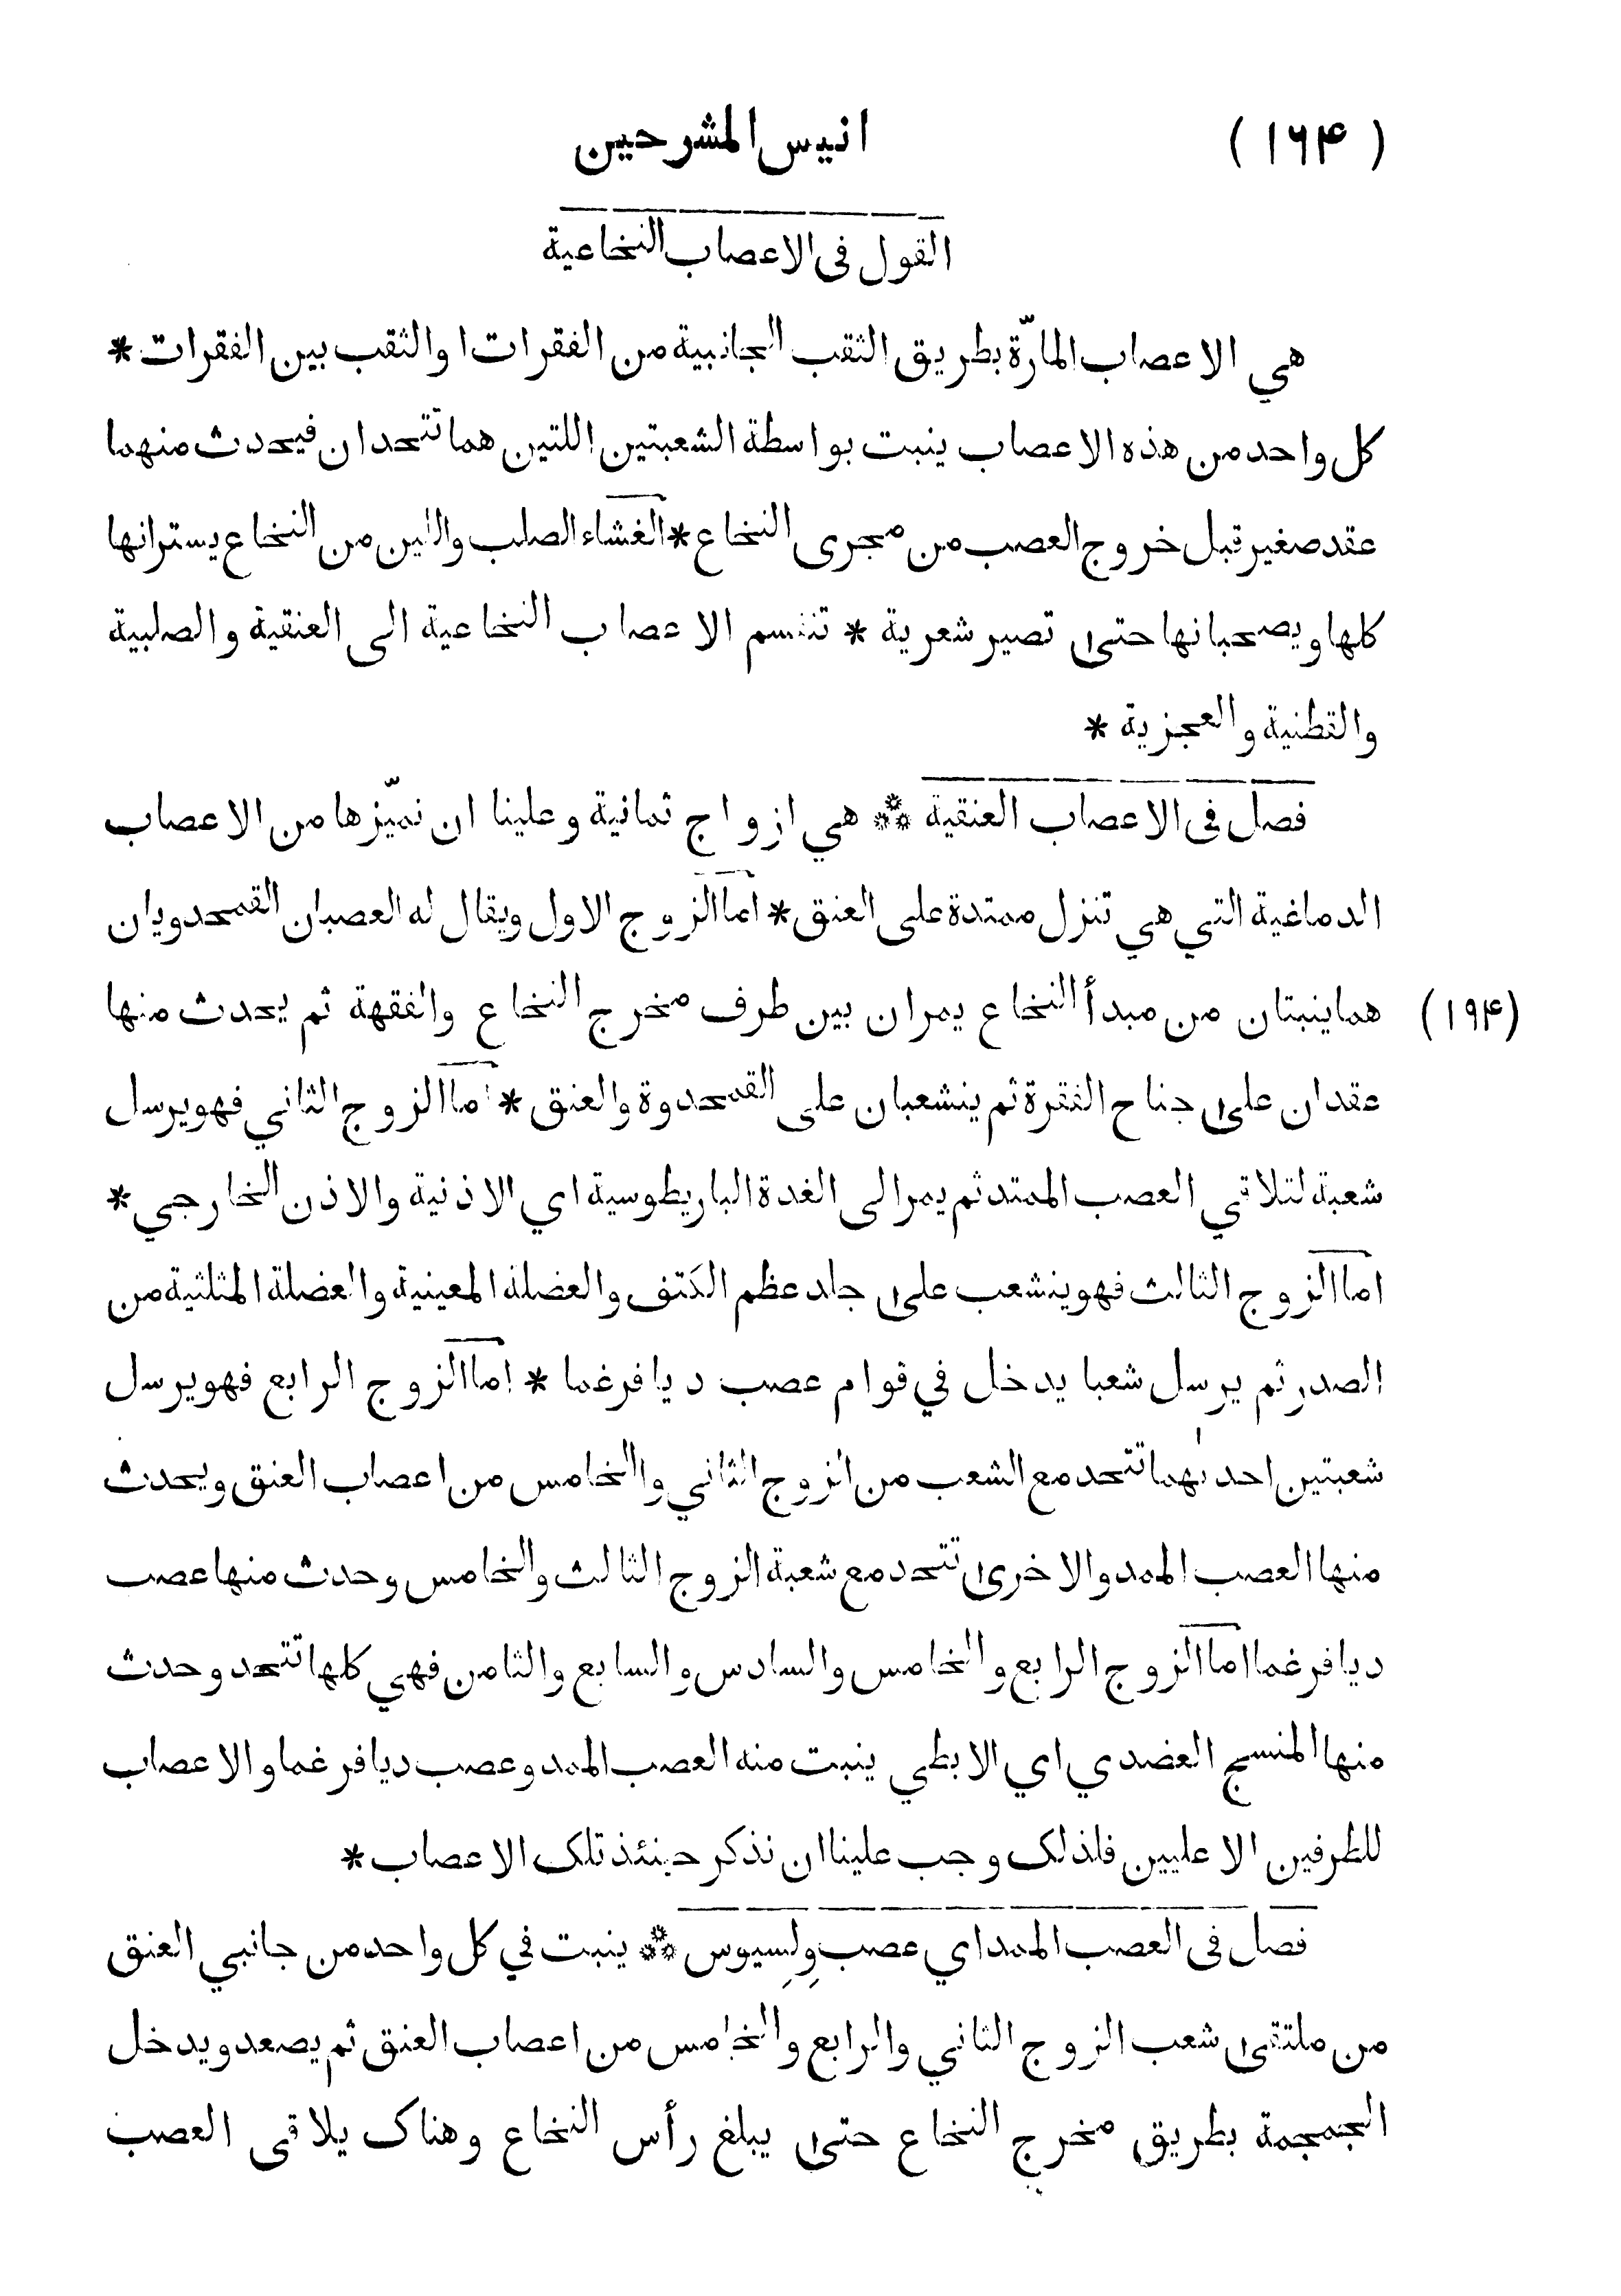 (۱۶۴) انيس المشرحين
القول فى الاعصاب النخاعية
هي الاعصاب المارّة بطريق الثقب الجانبية من الفقرات او الثقب بين الفقرات *
كل واحد من هذه الاعصاب ينبت بواسطة الشعبتين اللتين هما تتحدان فيحدث منهما
عقد صغير قبل خروج العصب من مجرى النخاع * الغشاء الصلب والاين من النخاع يسترانها
كلها ويصحبانها حتى تصير شعرية * تنقسم الاعصاب النخاعية الى العنقية والصلبية
والقطنية والعجزية *
فصل فى الاعصاب العنقية ⁂ هي ازواج ثمانية وعلينا ان نميّزها من الاعصاب
الدماغية التي هي تنزل ممتدة على العنق * اما الزوج الاول ويقال له العصبان القمحدويان
هما ينبتان من مبدأ النخاع يمران بين طرف مخرج النخاع والفقهة ثم يحدث منها (۱۹۴)
عقدان على جناح الفقرة ثم ينشعبان على القمحدوة والعنق * اما الزوج الثاني فهو يرسل
شعبة لتلاقي العصب الممتد ثم يمر الى الغدة الباريطوسية اي الاذنية والاذن الخارجي *
اما الزوج الثالث فهو ينشعب على جلد عظم الكتف والعضلة المعينية والعضلة المثلثية من
الصدر ثم يرسل شعبا يدخل في قوام عصب ديافرغما * اما الزوج الرابع فهو يرسل
شعبتين احدٰىهما تتحد مع الشعب من الزوج الثاني والخامس من اعصاب العنق ويحدث
منها العصب الممد والاخرى تتحد مع شعبة الزوج الثالث والخامس وحدث منها عصب
ديافرغما اما الزوج الرابع والخامس والسادس والسابع والثامن فهي كلها تتحد وحدث
منها المنسج العضدي اي الابطي ينبت منه العصب الممد وعصب ديافرغما والاعصاب
للطرفين الاعليين فلذلك وجب علينا ان نذكر حينئذ تلك الاعصاب *
فصل فى العصب الممد اي عصب وِلِسيوس ⁂ ينبت في كل واحد من جانبي العنق
من ملتقى شعب الزوج الثاني والرابع والخامس من اعصاب العنق ثم يصعد ويدخل
الجمجمة بطريق مخرج النخاع حتى يبلغ رأس النخاع وهناك يلاقى العصب